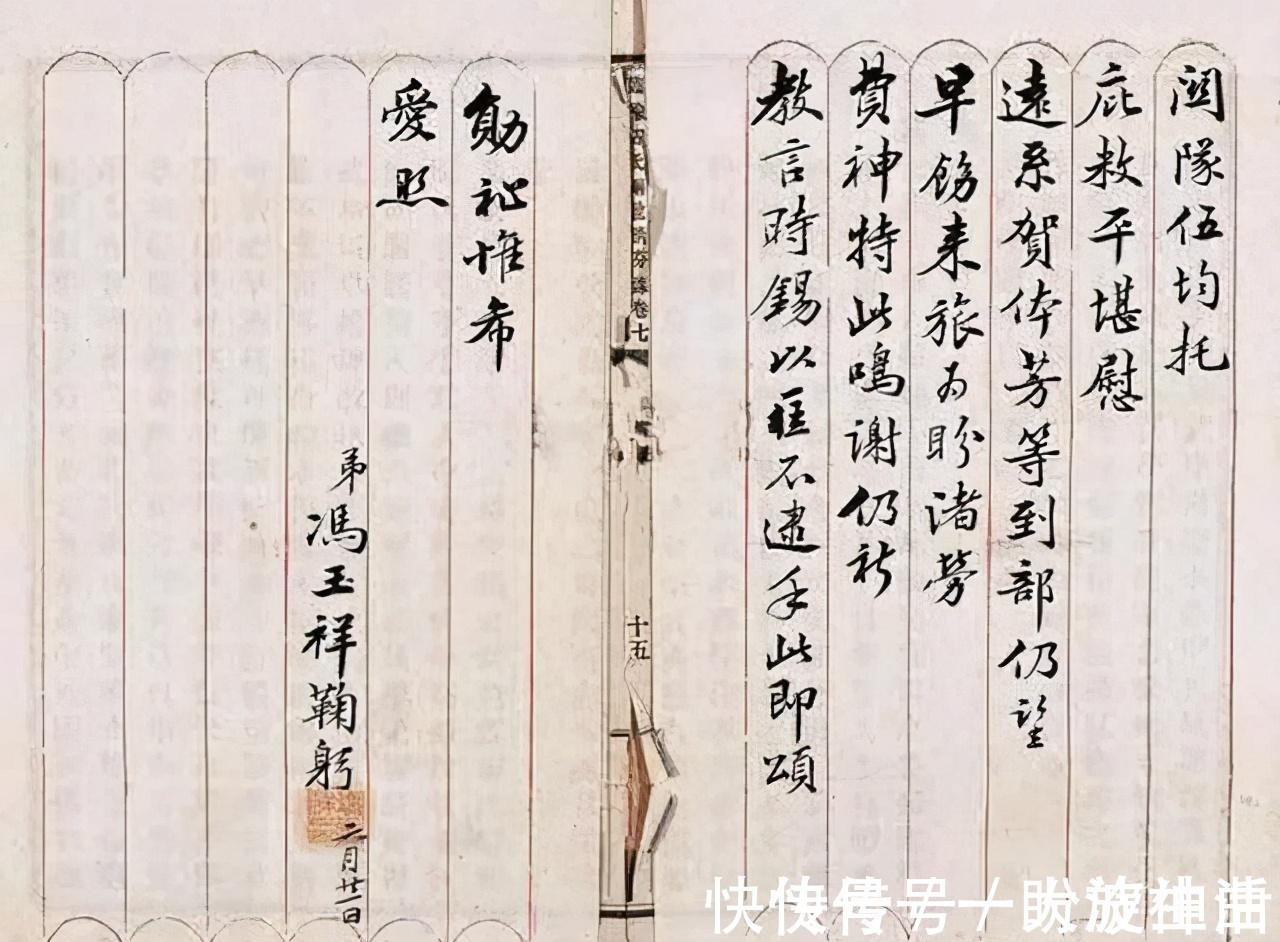 關隊伍均托
庇敉平堪慰
遠系賀体芳等到部仍望
早飭来旅为盼诸勞
費神特此鳴谢仍祈
教言時錫以匡不逮手此即頌
勛祉惟希
愛照
弟馮玉祥鞠躬
二月廿一日
卷七
十五